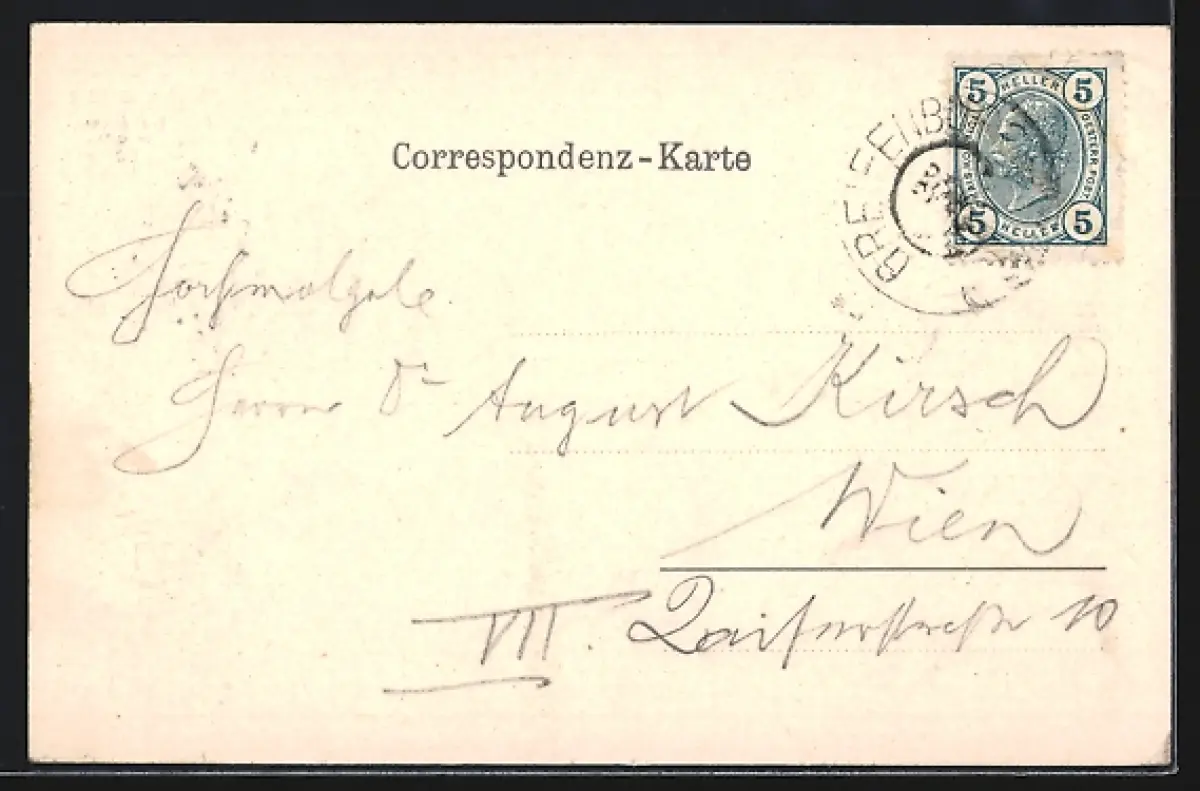 Correspondenz-Karte
5 HELLER 5
OESTERR. POST
5 HELLER 5
GREIFENBURG
Hochwolgeb.
Herrn Dr August Kirsch.
Wien
VII. Kaiserstraße 10